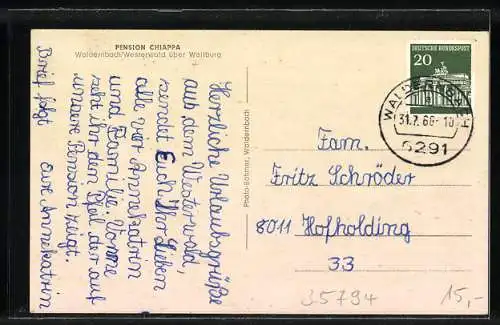 PENSION CHIAPPA
Waldernbach/Westerwald über Weilburg
Herzliche Urlaubsgrüße
aus dem Westerwald,
sendet Euch Ihr Lieben
alle vir Annekatrin
und Familie. Vorne
seht ihr den Pfeil der auf
unsere Pension zeigt.
Brief folgt eure Annekatrin
Photo Böhmer, Waldernbach
DEUTSCHE BUNDESPOST
20
WALDERNBACH
31.7.68-18
6291
Fam.
Fritz Schröder
8011 Hofholding
33
35794
15,-